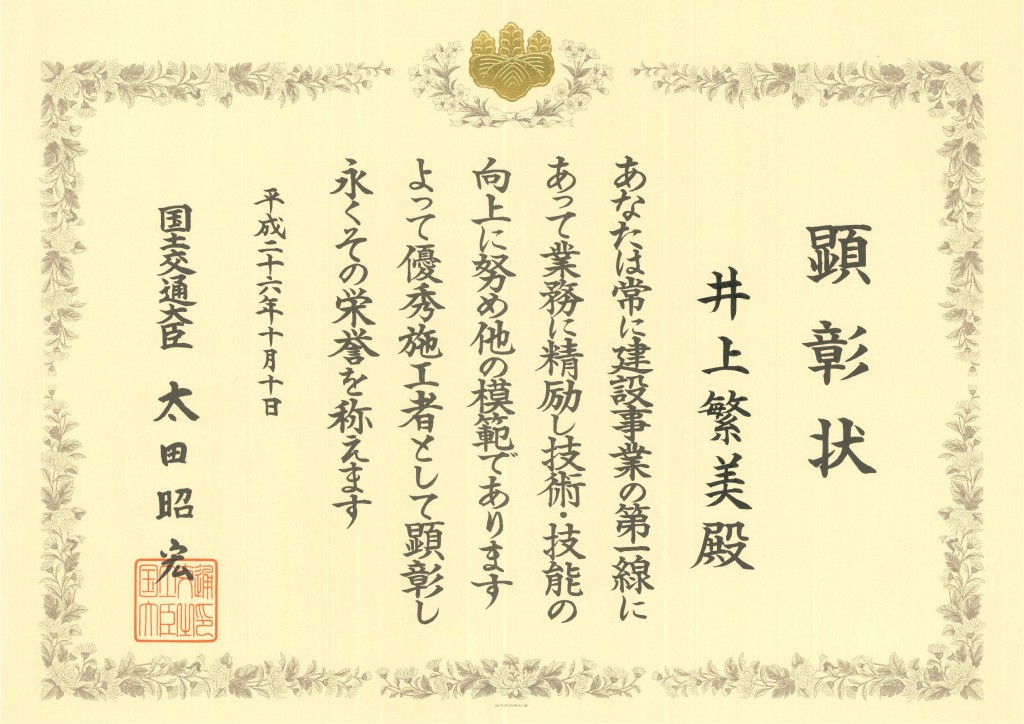 顕彰状
井上繁美殿
あなたは常に建設事業の第一線に
あって業務に精励し技術・技能の
向上に努め他の模範であります
よって優秀施工者として顕彰し
永くその栄誉を称えます
平成二十六年十月十日
国土交通大臣 太田昭宏